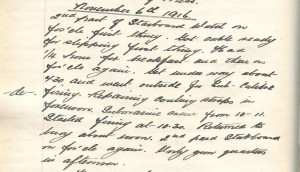 November 6th 1916
2nd part of Starboard Watch on
fo'cle first thing. Got cable ready
for slipping first thing. Had
1/4 hour for breakfast and then on
fo'cle again. Got under way about
4.30 and went outside for Sub-Calibre
firing. Repairing coaling straps in
forenoon. Submarine crew from 10-11.
Started firing at 10.30. Returned to
buoy about noon. 2nd part Starboard
on fo'cle again. Only gun quarters
in afternoon.